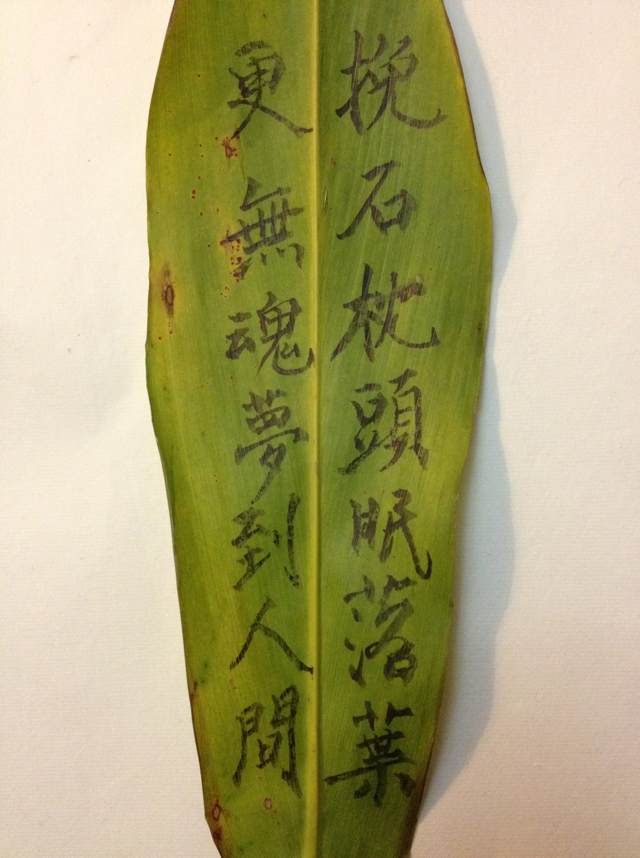 挽石枕頭眠落葉
更無魂夢到人間